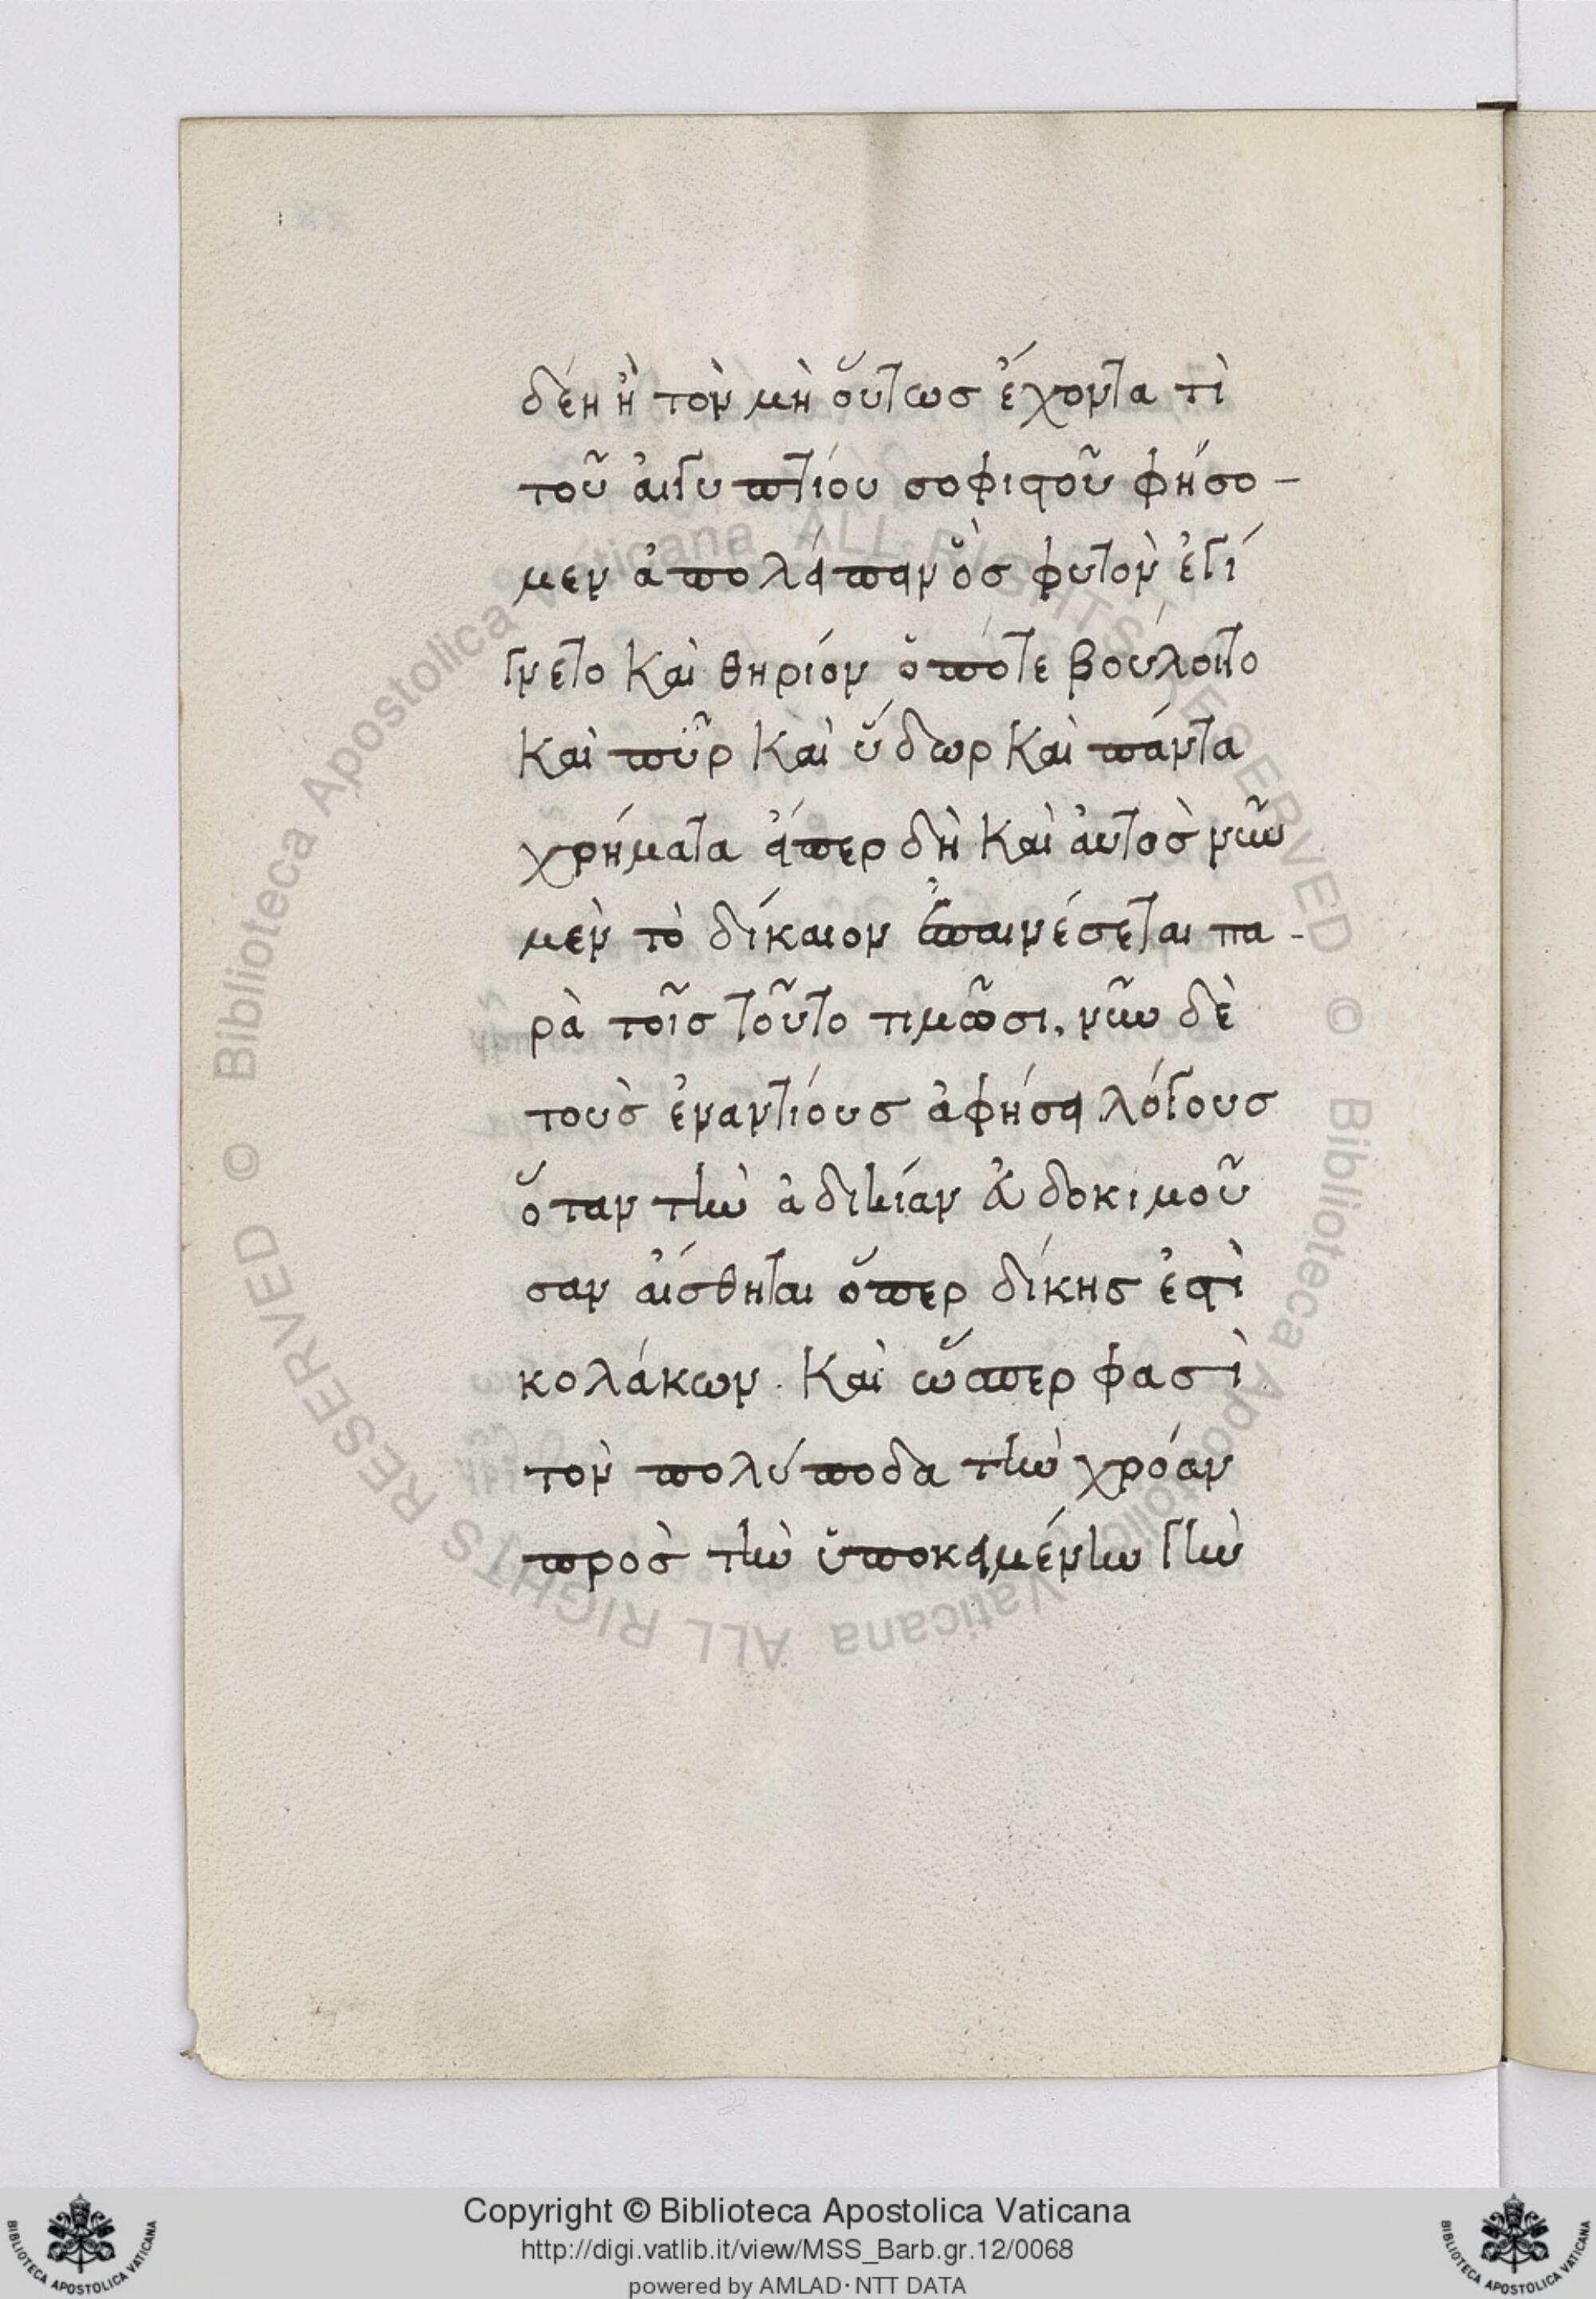 δέη ἢ τὸν μὴ οὕτως ἔχοντα τὶ
τοῦ αἰγυπτίου σοφιστοῦ φήσο-
μεν ἀπολείπειν ὃς φυτὸν ἐγί
γνετο καὶ θηρίον ὁπότε βούλοιτο
καὶ πῦρ καὶ ὕδωρ καὶ πάντα
χρήματα εἴπερ δὴ καὶ αὐτὸς νῦν
μὲν τὸ δίκαιον ἐπαινέσεται πα-
ρὰ τοῖς τοῦτο τιμῶσι, νῦν δὲ
τοὺς ἐναντίους ἀφήσει λόγους
ὅταν τὴν ἀδικίαν εὐδοκιμοῦ
σαν αἴσθηται ὅπερ δίκης ἐστὶ
κολάκων. Καὶ ὥσπερ φασὶ
τὸν πολύποδα τὴν χρόαν
πρὸς τὴν ὑποκειμένην γῆν
Copyright © Biblioteca Apostolica Vaticana
http://digi.vatlib.it/view/MSS_Barb.gr.12/0068
powered by AMLAD·NTT DATA
© Biblioteca Apostolica Vaticana ALL RIGHTS RESERVED © Biblioteca Apostolica Vaticana ALL RIGHTS RESERVED
BIBLIOTECA APOSTOLICA VATICANA
BIBLIOTECA APOSTOLICA VATICANA